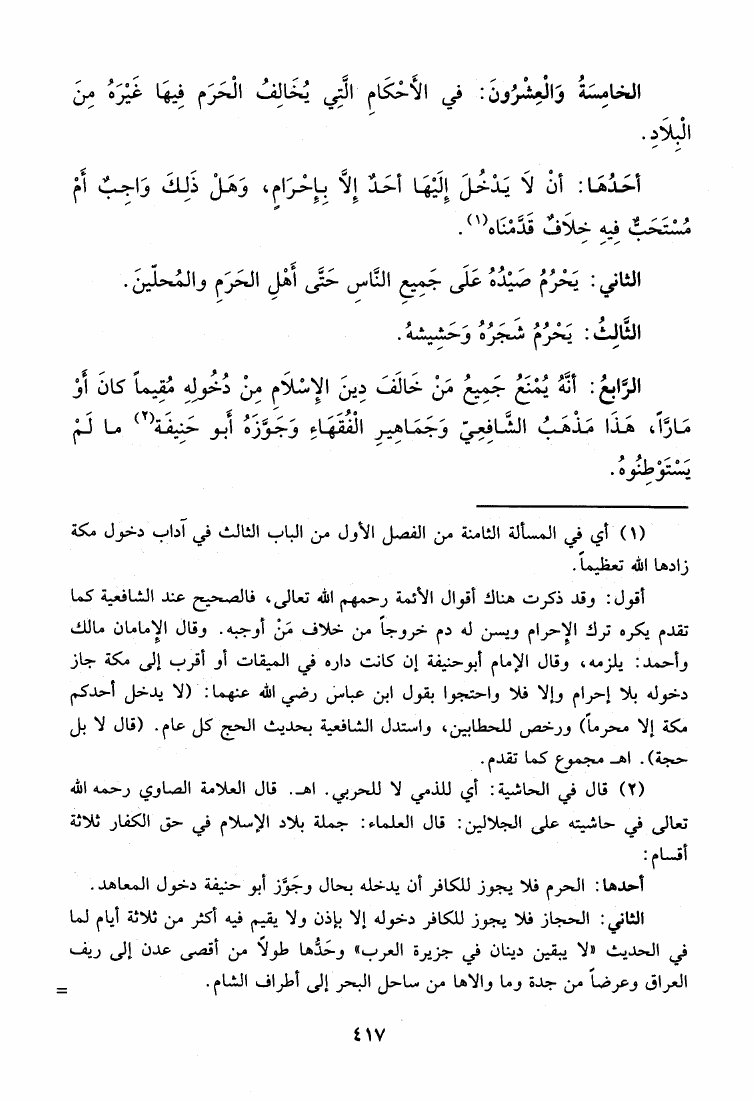 الخامِسَةُ وَالْعِشْرُونَ: في الأَحْكَامِ الَّتِي يُخَالِفُ الْحَرَم فِيهَا غَيْرَهُ مِنَ
الْبِلَادِ.
أحَدُهَا: أنْ لَا يَدْخُلَ إِلَيْهَا أحَدٌ إِلَّا بِإِحْرَامٍ، وَهَلْ ذَلِكَ وَاجِبٌ أمْ
مُسْتَحَبٌّ فِيهِ خِلَافٌ قَدَّمْنَاه(١).
الثاني: يَحْرُمُ صَيْدُهُ عَلَى جَمِيعِ النَّاسِ حَتَّى أَهْلِ الحَرَمِ والمُحلّينَ.
الثَّالِثُ: يَحْرُمُ شَجَرُهُ وَحَشِيشهُ.
الرَّابعُ: أنَّهُ يُمْنَعُ جَمِيعُ مَنْ خَالَفَ دِينَ الإِسْلَامِ مِنْ دُخُولِهِ مُقِيماً كانَ أَوْ
مَارَّاً، هَذَا مَذْهَبُ الشَّافِعِيّ وَجَمَاهِيرِ الْفُقَهَاءِ وَجَوَّزَهُ أَبو حَنِيفَة(٢) ما لَمْ
يَسْتَوْطِنُوهُ.
(١) أي في المسألة الثامنة من الفصل الأول من الباب الثالث في آداب دخول مكة
زادها الله تعظيماً.
أقول: وقد ذكرت هناك أقوال الأئمة رحمهم الله تعالى، فالصحيح عند الشافعية كما
تقدم يكره ترك الإحرام ويسن له دم خروجاً من خلاف مَنْ أوجبه. وقال الإمامان مالك
وأحمد: يلزمه، وقال الإمام أبوحنيفة إن كانت داره في الميقات أو أقرب إلى مكة جاز
دخوله بلا إحرام وإلا فلا واحتجوا بقول ابن عباس رضي الله عنهما: (لا يدخل أحدكم
مكة إلا محرماً) ورخص للحطابين، واستدل الشافعية بحديث الحج كل عام. (قال لا بل
حجة). اهـ مجموع كما تقدم.
(٢) قال في الحاشية: أي للذمي لا للحربي. اهـ. قال العلامة الصاوي رحمه الله
تعالى في حاشيته على الجلالين: قال العلماء: جملة بلاد الإسلام في حق الكفار ثلاثة
أقسام:
أحدها: الحرم فلا يجوز للكافر أن يدخله بحال وجَوَّز أبو حنيفة دخول المعاهد.
الثاني: الحجاز فلا يجوز للكافر دخوله إلا بإذن ولا يقيم فيه أكثر من ثلاثة أيام لما
في الحديث «لا يبقين دينان في جزيرة العرب» وحَدُّها طولاً من أقصى عدن إلى ريف
العراق وعرضاً من جدة وما والاها من ساحل البحر إلى أطراف الشام. =
٤١٧